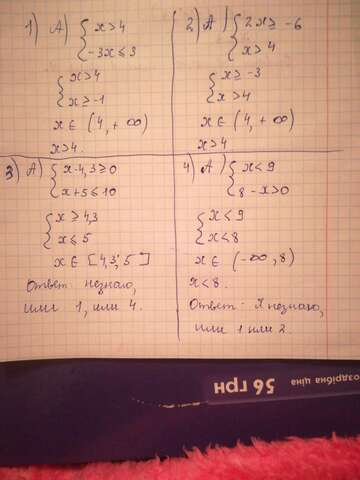 1) А) { x > 4
-3x ≤ 3
{ x > 4
x ≥ -1
x ∈ (4, +∞)
x > 4.
2) А) { 2x ≥ -6
x > 4
{ x ≥ -3
x > 4
x ∈ (4, +∞)
x > 4
3) А) { x-4,3 ≥ 0
x+5 ≤ 10
{ x ≥ 4,3
x ≤ 5
x ∈ [4,3; 5]
Ответ незнаю,
или 1, или 4.
4) А) { x < 9
8 - x > 0
{ x < 9
x < 8
x ∈ (-∞, 8)
x < 8.
Ответ - Я незнаю,
или 1 или 2.
оздрібна ціна 56 грн